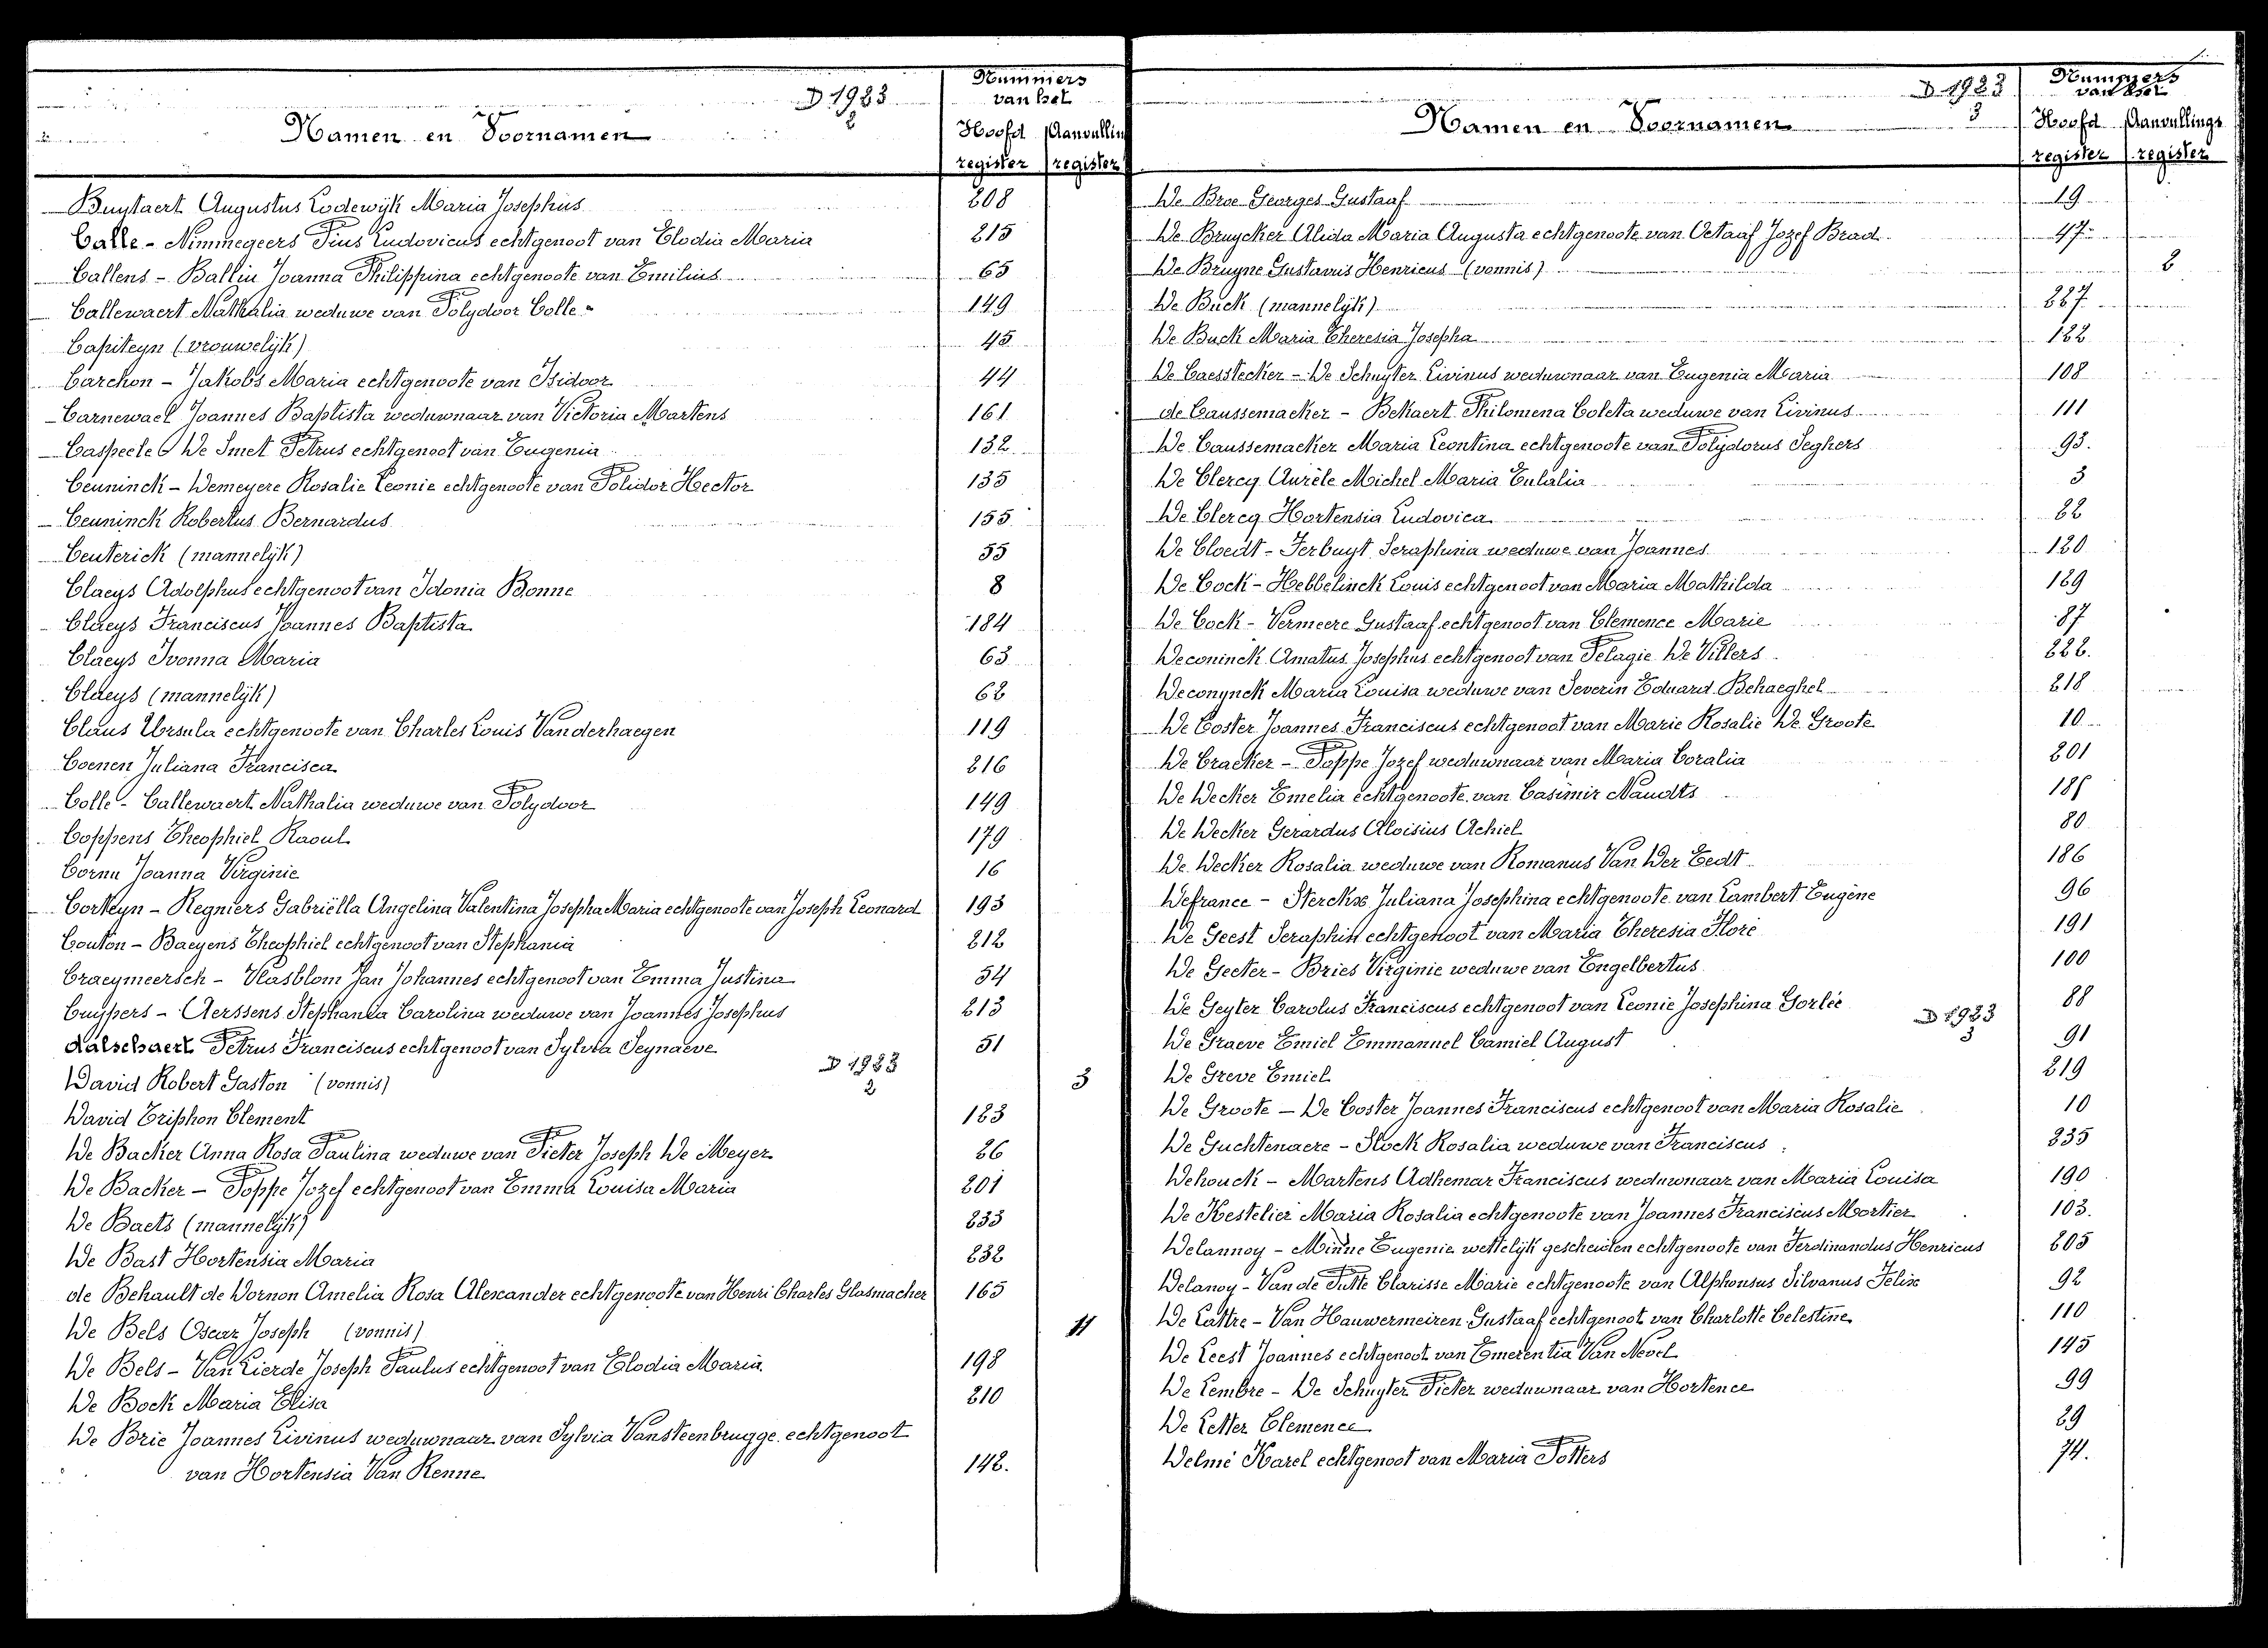 D 1923
2
Namen en Voornamen
Nummers van het
Hoofd register
Aanvullin register
Buystaert Augustus Lodewijk Maria Josephus 208
Calle - Nimmegeers Pius Ludovicus echtgenoot van Elodia Maria 215
Callens - Balliu Joanna Philippina echtgenoote van Emilius 65
Callewaert Nathalia weduwe van Polydoor Colle 149
Capiteyn (vrouwelijk) 45
Carchon - Jakobs Maria echtgenoote van Isidoor 44
Carnewael Joannes Baptista weduwnaar van Victoria Martens 161
Caspeele De Smet Petrus echtgenoot van Eugenia 132
Ceuninck - Demeyere Rosalie Leonie echtgenoote van Polidor Hector 135
Ceuninck Robertus Bernardus 155
Ceuterick (mannelijk) 55
Claeys Adolphus echtgenoot van Idonia Bonne 8
Claeys Franciscus Joannes Baptista 184
Claeys Ivonna Maria 63
Claeys (mannelijk) 62
Claus Ursula echtgenoote van Charles Louis Vanderhaegen 119
Coenen Juliana Francisca 216
Colle - Callewaert Nathalia weduwe van Polydoor 149
Coppens Theophiel Raoul 179
Cornu Joanna Virginie 16
Corteyn - Regniers Gabriëlla Angelina Valentina Josepha Maria echtgenoote van Joseph Leonard 193
Couton - Baeyens Theophiel echtgenoot van Stephania 212
Craeymeersch - Vlasblom Jan Johannes echtgenoot van Emma Justina 54
Cuypers - Aerssens Stephania Carolina weduwe van Joannes Josephus 213
dalschaert Petrus Franciscus echtgenoot van Sylvia Seynaeve 51
D 1923
2
David Robert Gaston (vonnis) 3
David Triphon Clement 123
De Backer Anna Rosa Paulina weduwe van Pieter Joseph De Meyer 26
De Backer - Poppe Jozef echtgenoot van Emma Louisa Maria 201
De Baets (mannelijk) 233
De Bast Hortensia Maria 232
de Behault de Dornon Amelia Rosa Alexander echtgenoote van Henri Charles Glasmacher 165
De Bels Oscar Joseph (vonnis) 11
De Bels - Van Lierde Joseph Paulus echtgenoot van Elodia Maria 198
De Bock Maria Elisa 210
De Brie Joannes Livinus weduwnaar van Sylvia Vansteenbrugge echtgenoot
van Hortensia Van Renne 142.
D 1923
3
Namen en Voornamen
Nummers van het
Hoofd register
Aanvullings register
De Broe Georges Gustaaf 19
De Bruycker Alida Maria Augusta echtgenoote van Octaaf Jozef Brad 47
De Bruyne Gustavus Henricus (vonnis) 2
De Buck (mannelijk) 227
De Buck Maria Theresia Josepha 122
De Caesstecker - De Schuyter Livinus weduwnaar van Eugenia Maria 108
de Caussemacker - Bekaert Philomena Coleta weduwe van Livinus 111
De Caussemacker Maria Leontina echtgenoote van Polydorus Seghers 93.
De Clercq Aurèle Michel Maria Eulalia 3
De Clercq Hortensia Ludovica 22
De Cloedt - Ferbuyt Seraphina weduwe van Joannes 120
De Cock - Hebbelinck Louis echtgenoot van Maria Mathilda 129
De Cock - Vermeere Gustaaf echtgenoot van Clemence Marie 87
Deconinck Amatus Josephus echtgenoot van Pelagie De Villers 222.
Deconynck Maria Louisa weduwe van Severin Eduard Behaeghel 218
De Coster Joannes Franciscus echtgenoot van Marie Rosalie De Groote 10
De Cracker - Poppe Jozef weduwnaar van Maria Coralia 201
De Decker Emelia echtgenoote van Casimir Naudts
De Decker Gerardus Aloisius Achiel 80
De Decker Rosalia weduwe van Romanus Van Der Eedt 186
Defrance - Sterckx Juliana Josephina echtgenoote van Lambert Eugène 96
De Geest Seraphin echtgenoot van Maria Theresia Floré 191
De Geeter - Bries Virginie weduwe van Engelbertus 100
De Geyter Carolus Franciscus echtgenoot van Leonie Josephina Gorlée 88
D 1923
3
De Graeve Emiel Emmanuel Camiel August 91
De Greve Emiel 219
De Groote - De Coster Joannes Franciscus echtgenoot van Maria Rosalie 10
De Guchtenaere - Stock Rosalia weduwe van Franciscus 235
Dehouck - Martens Adhemar Franciscus weduwnaar van Maria Louisa 190
De Kestelier Maria Rosalia echtgenoote van Joannes Franciscus Mortier 103.
Delannoy - Minne Eugenie wettelijk gescheiden echtgenoote van Ferdinandus Henricus 205
Delanoy - Van de Putte Clarisse Marie echtgenoote van Alphonsus Silvanus Felix 92
De Lattre - Van Hauwermeiren Gustaaf echtgenoot van Charlotte Celestine 110
De Leest Joannes echtgenoot van Emerentia Van Nevel 145
De Lembre - De Schuyter Pieter weduwnaar van Hortence 99
De Letter Clemence 29
Delmé Karel echtgenoot van Maria Potters 74.